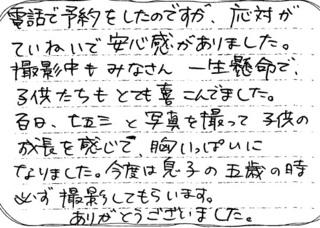 電話で予約をしたのですが、応対が
ていねいで安心感がありました。
撮影中もみなさん一生懸命で、
子供たちもとても喜こんでました。
百日、七五三と写真を撮って子供の
成長を感じて、胸いっぱいに
なりました。今度は息子の五歳の時
必ず撮影してもらいます。
ありがとうございました。